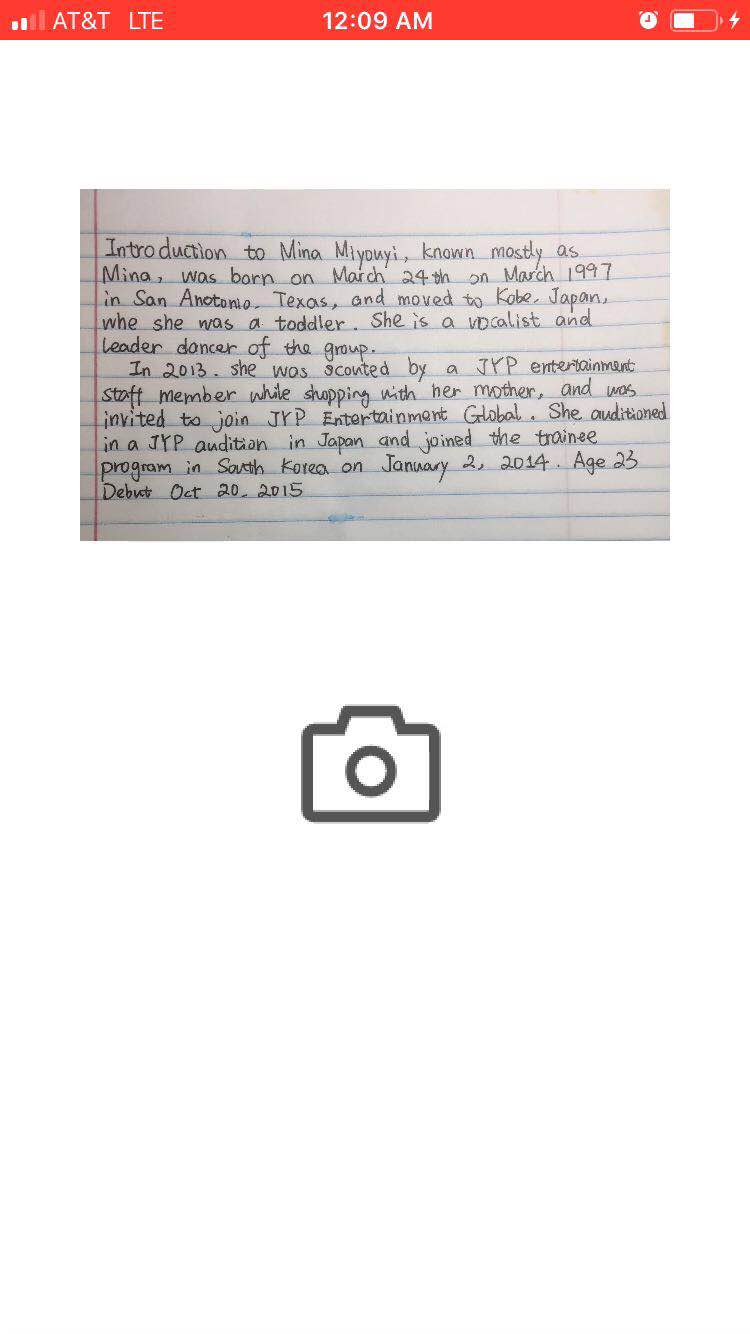 AT&T LTE 12:09 AM
Introduction to Mina Miyouyi, known mostly as
Mina, was born on March 24th on March 1997
in San Anotonio. Texas, and moved to Kobe. Japan,
whe she was a toddler. She is a vocalist and
leader dancer of the group.
In 2013. she was scouted by a JYP entertainment
staff member while shopping with her mother, and was
invited to join JYP Entertainment Global. She auditioned
in a JYP audition in Japan and joined the trainee
program in South Korea on January 2, 2014. Age 23
Debut Oct 20. 2015